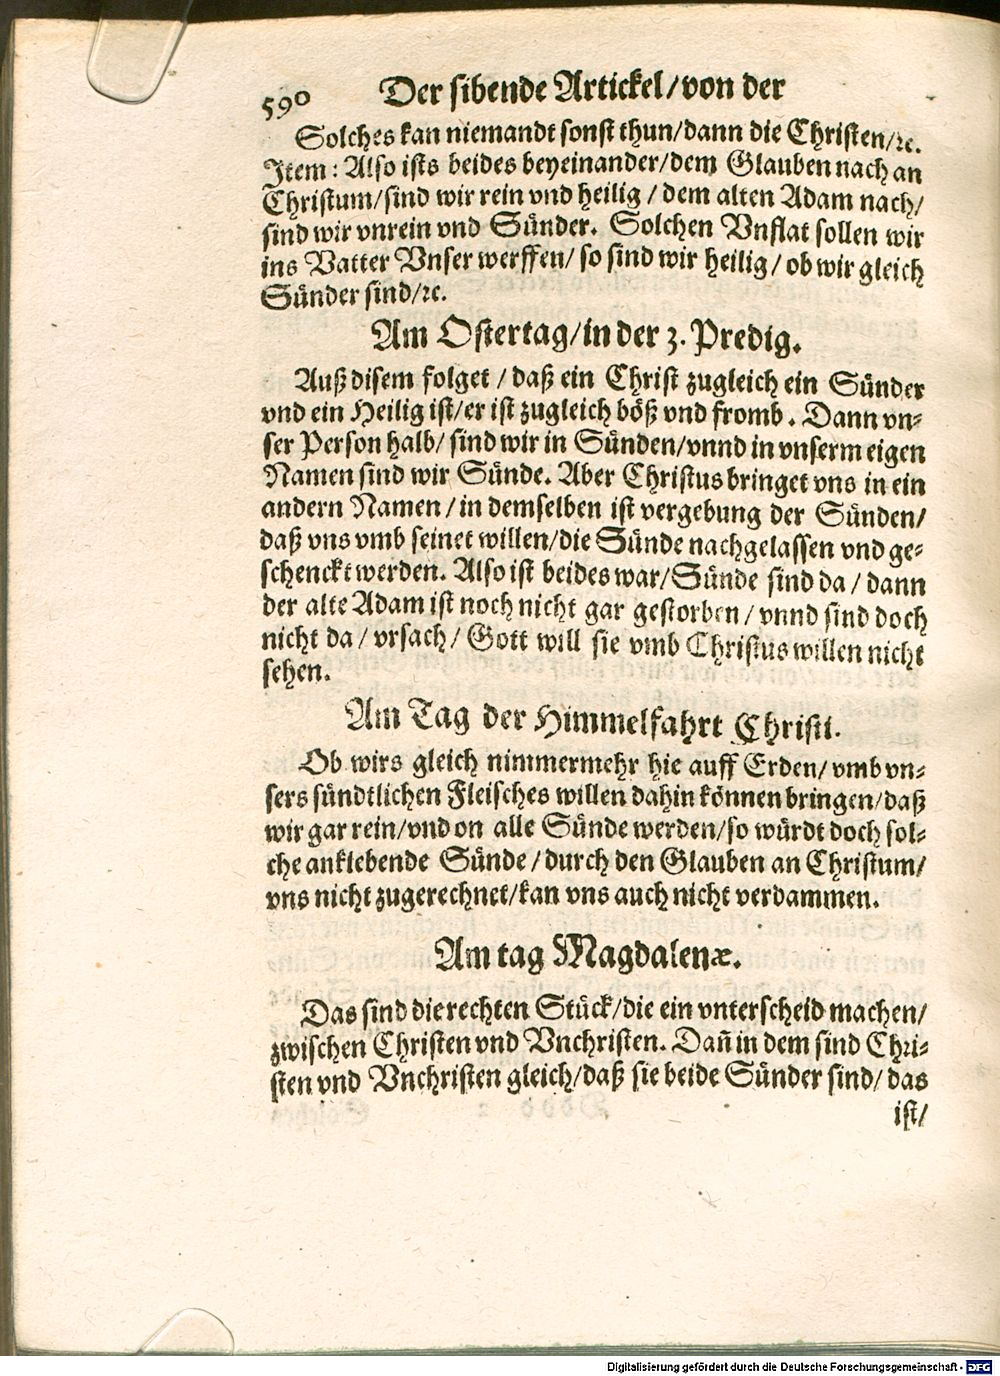 590 Der sibende Artickel/von der
Solches kan niemandt sonst thun/dann die Christen/ꝛc.
Item: Also ists beides beyeinander/dem Glauben nach an
Christum/sind wir rein vnd heilig/dem alten Adam nach/
sind wir vnrein vnd Sünder. Solchen Vnflat sollen wir
ins Vatter Vnser werffen/so sind wir heilig/ob wir gleich
Sünder sind/ꝛc.
Am Ostertag/in der 3. Predig.
Auß disem folget/daß ein Christ zugleich ein Sünder
vnd ein Heilig ist/er ist zugleich böß vnd fromb. Dann vn-
ser Person halb/sind wir in Sünden/vnnd in vnserm eigen
Namen sind wir Sünde. Aber Christus bringet vns in ein
andern Namen/in demselben ist vergebung der Sünden/
daß vns vmb seinet willen/die Sünde nachgelassen vnd ge-
schenckt werden. Also ist beides war/Sünde sind da/dann
der alte Adam ist noch nicht gar gestorben/vnnd sind doch
nicht da/vrsach/Gott will sie vmb Christus willen nicht
sehen.
Am Tag der Himmelfahrt Christi.
Ob wirs gleich nimmermehr hie auff Erden/vmb vn-
sers sündtlichen Fleisches willen dahin können bringen/daß
wir gar rein/vnd on alle Sünde werden/so würdt doch sol-
che anklebende Sünde/durch den Glauben an Christum/
vns nicht zugerechnet/kan vns auch nicht verdammen.
Am tag Magdalenæ.
Das sind die rechten Stück/die ein vnterscheid machen/
zwischen Christen vnd Vnchristen. Dañ in dem sind Chri-
sten vnd Vnchristen gleich/daß sie beide Sünder sind/das
ist/
Digitalisierung gefördert durch die Deutsche Forschungsgemeinschaft - DFG